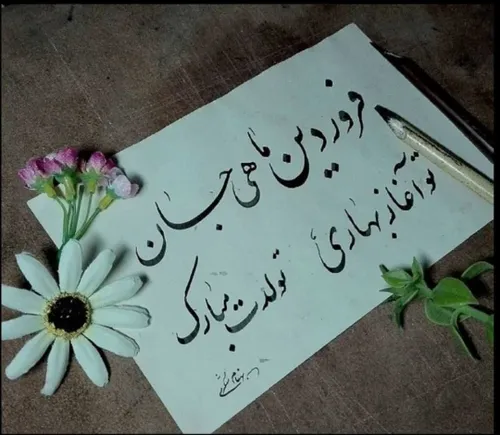 فروردین ماهی جان
تو آغاز بهاری
تولدت مبارک